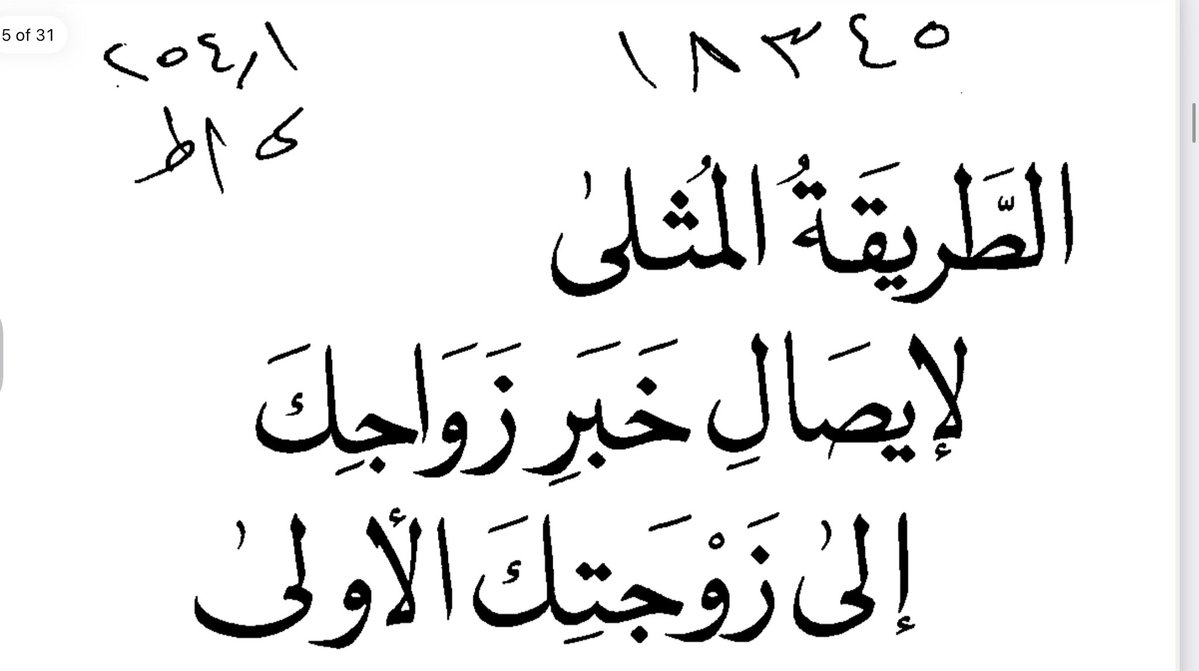 5 of 31
١٨٣٤٥
٢٥٤,١
ط ا ه
الطَّرِيقَةُ المُثلىٰ
لإيصَالِ خَبَرِ زَوَاجِكَ
إلىٰ زَوْجَتِكَ الأولىٰ